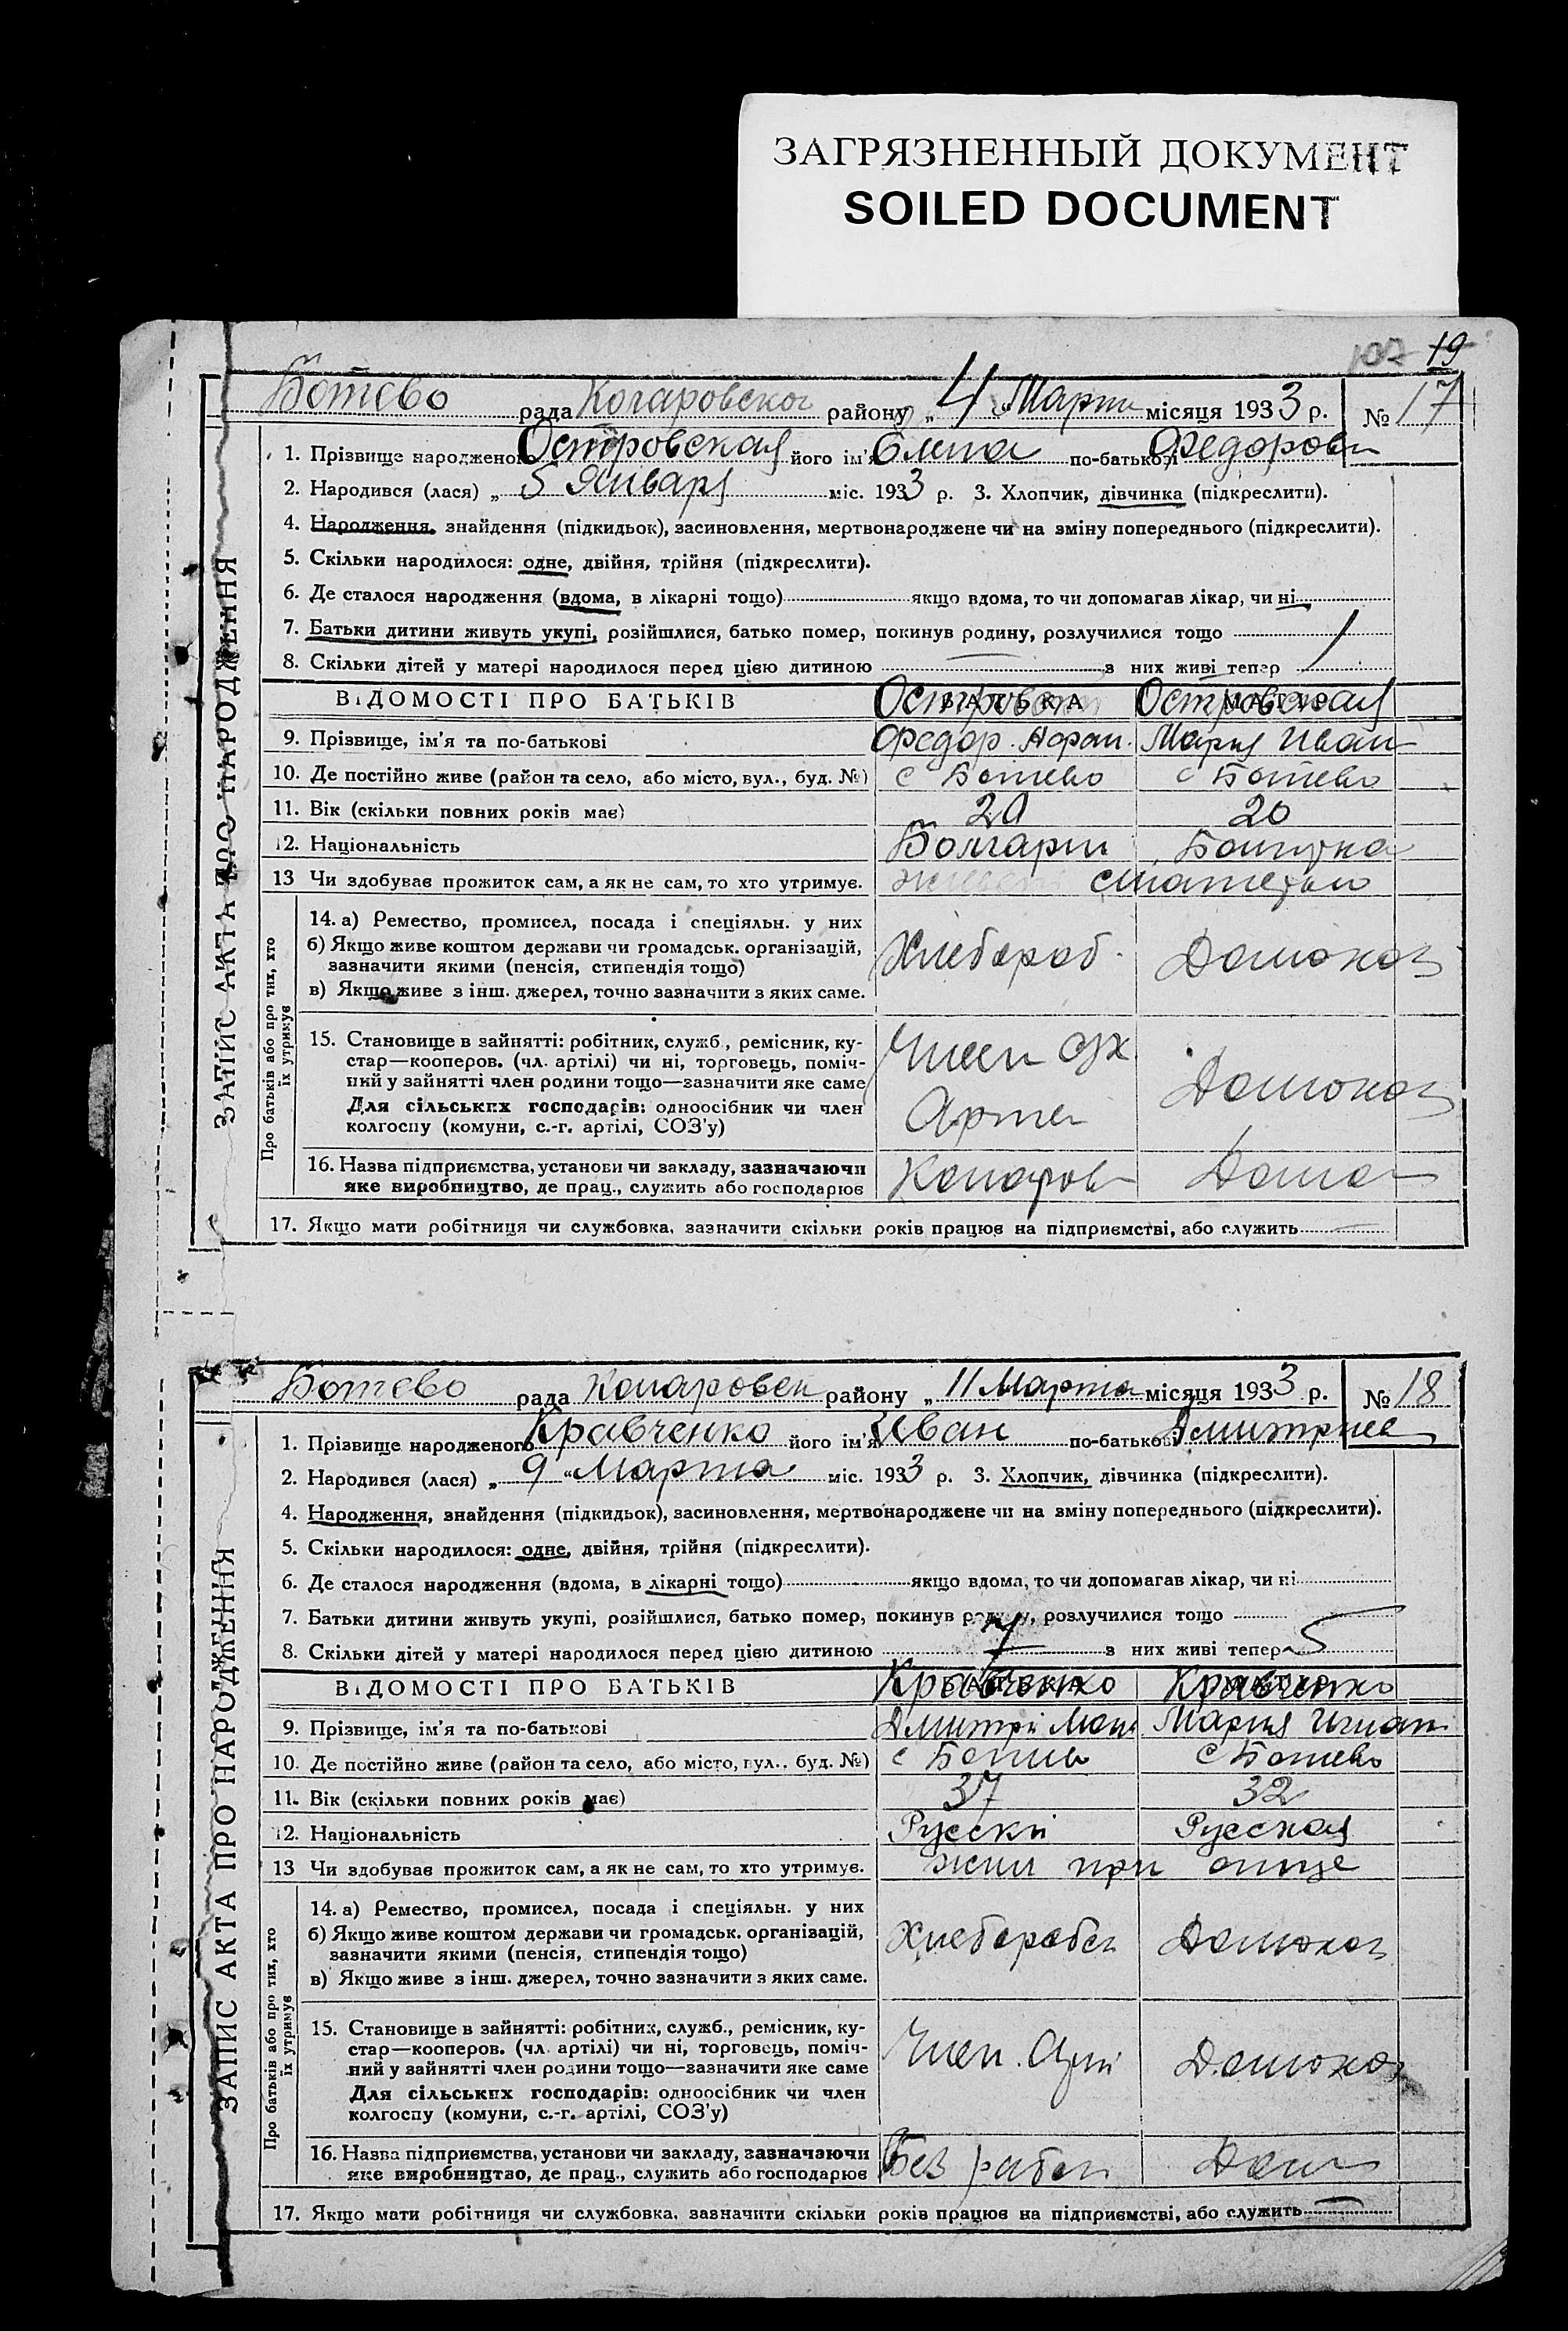 ЗАГРЯЗНЕННЫЙ ДОКУМЕНТ
SOILED DOCUMENT
107 19
Ботево рада района „4 Марта місяця 1933 р. № 17
1. Прізвище народженого Островская його ім'я Елена по-батькові Федоровн
2. Народився (лася) „ 5 Января міс. 1933 р. 3. Хлопчик, дівчинка (підкреслити).
4. Народження, знайдення (підкидьок), засиновлення, мертвонароджене чи на зміну попереднього (підкреслити).
5. Скільки народилося: одне, двійня, трійня (підкреслити).
6. Де сталося народження (вдома, в лікарні тощо) якщо вдома, то чи допомагав лікар, чи ні
7. Батьки дитини живуть укупі, розійшлися, батько помер, покинув родину, розлучилися тощо
8. Скільки дітей у матері народилося перед цією дитиною — з них живі тепер 1
ВІДОМОСТІ ПРО БАТЬКІВ БАТЬКА МАТЕРІ
Островская
9. Прізвище, ім'я та по-батькові Федор Афан. Мария Иван
10. Де постійно живе (район та село, або місто, вул., буд. №) с Ботево с Ботево
11. Вік (скільки повних років має) 20
12. Національність Болгарин
13 Чи здобуває прожиток сам, а як не сам, то хто утримує.
14. а) Ремество, промисел, посада і спеціяльн. у них
б) Якщо живе коштом держави чи громадськ. організацій,
зазначити якими (пенсія, стипендія тощо) Хлебороб. Домохоз
в) Якщо живе з інш. джерел, точно зазначити з яких саме.
15. Становище в зайнятті: робітник, служб., ремісник, ку-
стар—кооперов. (чл. артілі) чи ні, торговець, поміч-
ний у зайнятті член родини тощо—зазначити яке саме
Для сільських господарів: одноосібник чи член
колгоспу (комуни, с.-г. артілі, СОЗ'у) Домохоз
16. Назва підприємства, установи чи закладу, зазначаючи
яке виробництво, де прац., служить або господарює
17. Якщо мати робітниця чи службовка, зазначити скільки років працює на підприємстві, або служить —
ЗАПИС АКТА ПРО НАРОДЖЕННЯ
Про батьків або про тих, хто
їх утримує
Ботево рада району „ 11 Марта місяця 1933 р. № 18
1. Прізвище народженого Кравченко його ім'я Иван по-батькові Дмитрие
2. Народився (лася) „ 9 “ Марта міс. 1933 р. 3. Хлопчик, дівчинка (підкреслити).
4. Народження, знайдення (підкидьок), засиновлення, мертвонароджене чи на зміну попереднього (підкреслити).
5. Скільки народилося: одне, двійня, трійня (підкреслити).
6. Де сталося народження (вдома, в лікарні тощо) якщо вдома, то чи допомагав лікар, чи ні
7. Батьки дитини живуть укупі, розійшлися, батько помер, покинув родину, розлучилися тощо
8. Скільки дітей у матері народилося перед цією дитиною 7 з них живі тепер 5
ВІДОМОСТІ ПРО БАТЬКІВ БАТЬКА МАТЕРІ
Кравченко Кравченко
9. Прізвище, ім'я та по-батькові Дмитри Мария Игнат
10. Де постійно живе (район та село, або місто, вул., буд. №) с Ботево с Ботево
11. Вік (скільки повних років має) 37 32
12. Національність Русски Русская
13 Чи здобуває прожиток сам, а як не сам, то хто утримує. при отце
14. а) Ремество, промисел, посада і спеціяльн. у них
б) Якщо живе коштом держави чи громадськ. організацій,
зазначити якими (пенсія, стипендія тощо) Домохоз
в) Якщо живе з інш. джерел, точно зазначити з яких саме.
15. Становище в зайнятті: робітник, служб., ремісник, ку-
стар—кооперов. (чл. артілі) чи ні, торговець, поміч-
ний у зайнятті член родини тощо—зазначити яке саме
Для сільських господарів: одноосібник чи член
колгоспу (комуни, с.-г. артілі, СОЗ'у) Домохоз
16. Назва підприємства, установи чи закладу, зазначаючи
яке виробництво, де прац., служить або господарює Без
17. Якщо мати робітниця чи службовка, зазначити скільки років працює на підприємстві, або служить —
ЗАПИС АКТА ПРО НАРОДЖЕННЯ
Про батьків або про тих, хто
їх утримує